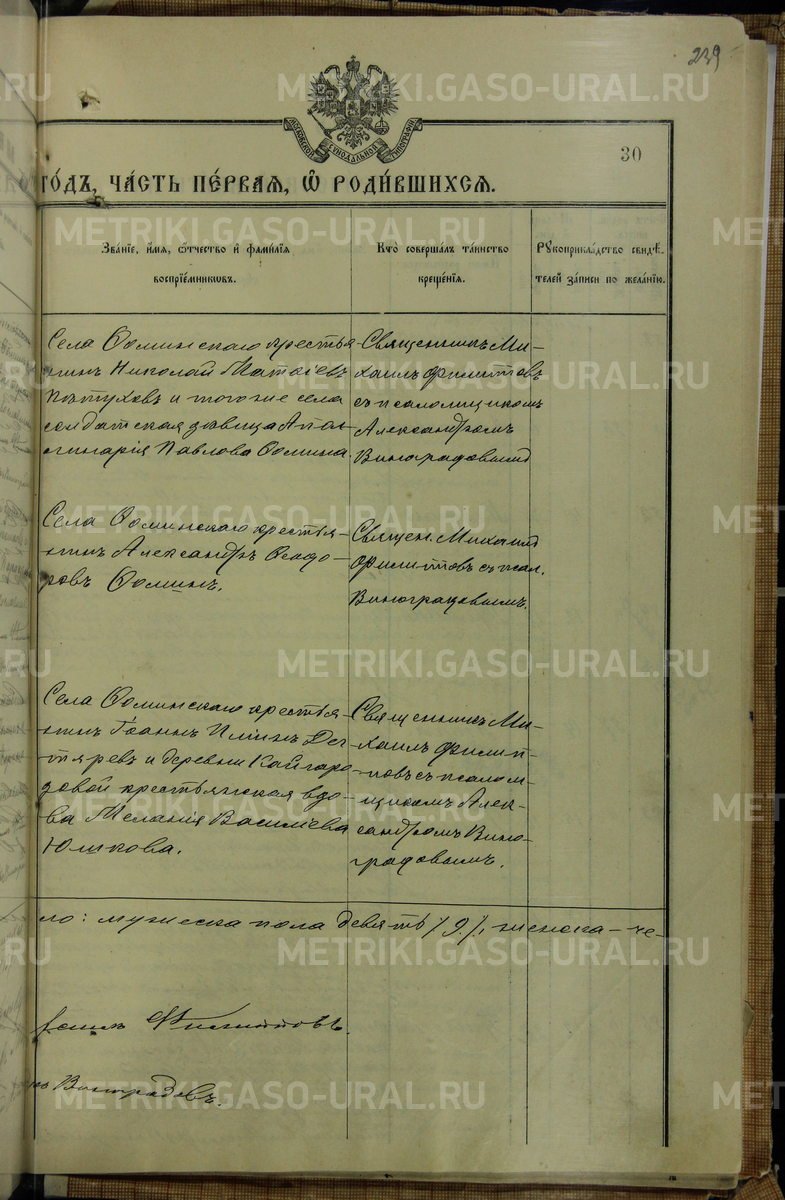 239
МОСКОВСКОЙ СѴНОДАЛЬНОЙ ТИПОГРАФІИ
30
ГО́ДЪ, ЧА́СТЬ ПЕ́РВАЯ, Ѡ҆ РОДИ́ВШИХСЯ.
Зва́ніе, и҆́мя, ѻ҆́тчество и҆ фами́лїя
воспрїе́мниковъ.
Кто̀ соверша́лъ та́инство
креще́нїя.
Рꙋкоприкла́дство свидѣ́-
телей за́писи по жела́нїю.
Села Ѳоминскаго крестья-
нинъ Николай Матѳіевъ
Пѣтуховъ и того же села
солдатская дѣвица Апол-
линарія Павлова Ѳомина.
Священникъ Ми-
хаилъ Филитовъ
съ псаломщикомъ
Александромъ
Виноградовымъ
Села Ѳоминскаго крестья-
нинъ Александръ Ѳеодо-
ровъ Ѳоминъ.
Священ. Михаилъ
Филитовъ съ псал.
Виноградовымъ.
Села Ѳоминскаго крестья-
нинъ Іоаннъ Илiинъ Дег-
тяревъ и деревни Кайгаро-
довой крестьянская вдо-
ва Меланія Васильева
Юшкова.
Священникъ Ми-
хаилъ
съ псалом-
щикомъ Алек-
сандромъ Вино-
градовымъ.
ло: мужеска пола девять /9/, женска – че-
хаилъ
Виноградовъ.
METRIKI.GASO-URAL.RU